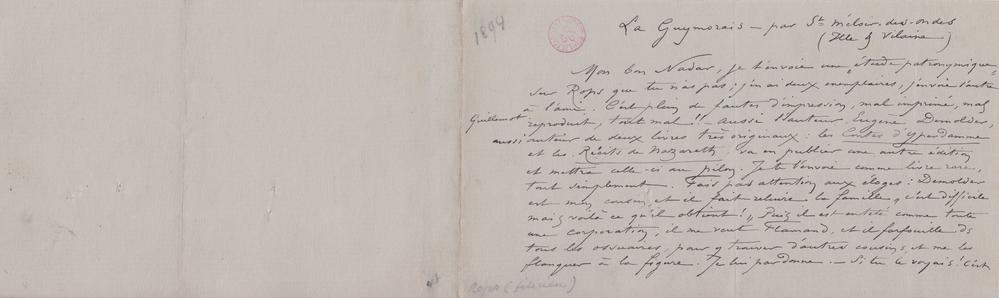 1899
La Guymorais — par St Méloir-des-ondes
(Ille & Vilaine)
Mon bon Nadar, je t'envoie une "étude patronymique"
sur Rops que tu n'as pas; j'en ai deux exemplaires, j'envoie l'autre
à l'ami Guillemot. C'est plein de fautes d'impression, mal imprimé, mal
reproduit, tout mal!! — aussi l'auteur, Eugène Demolder,
aussi auteur de deux livres très originaux: les Contes d'Yperdamme
et les Récits de Nazareth, va en publier une autre édition
et mettre celle-ci au pilon. Je te l'envoie comme livre rare,
tout simplement. Fais pas attention aux éloges: Demolder
est mon cousin, et il fait reluire la famille, c'est difficile
mais voilà ce qu'il obtient! Puis il est entêté comme toute
une corporation, il me veut Flamand, et il farfouille ds
tous les ossuaires, pour y trouver d'autres cousins et me les
flanquer à la figure. Je lui pardonne. — Si tu le voyais! C'est
Rops (Félicien)